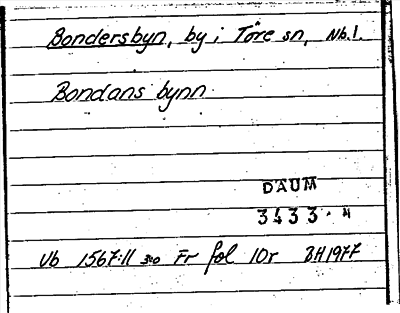 Bondersbyn, by i Töre sn, Nb.l.
Bondans bynn
DAUM
3433. H
Vb 1567:11 Fr fol 10r BH1977